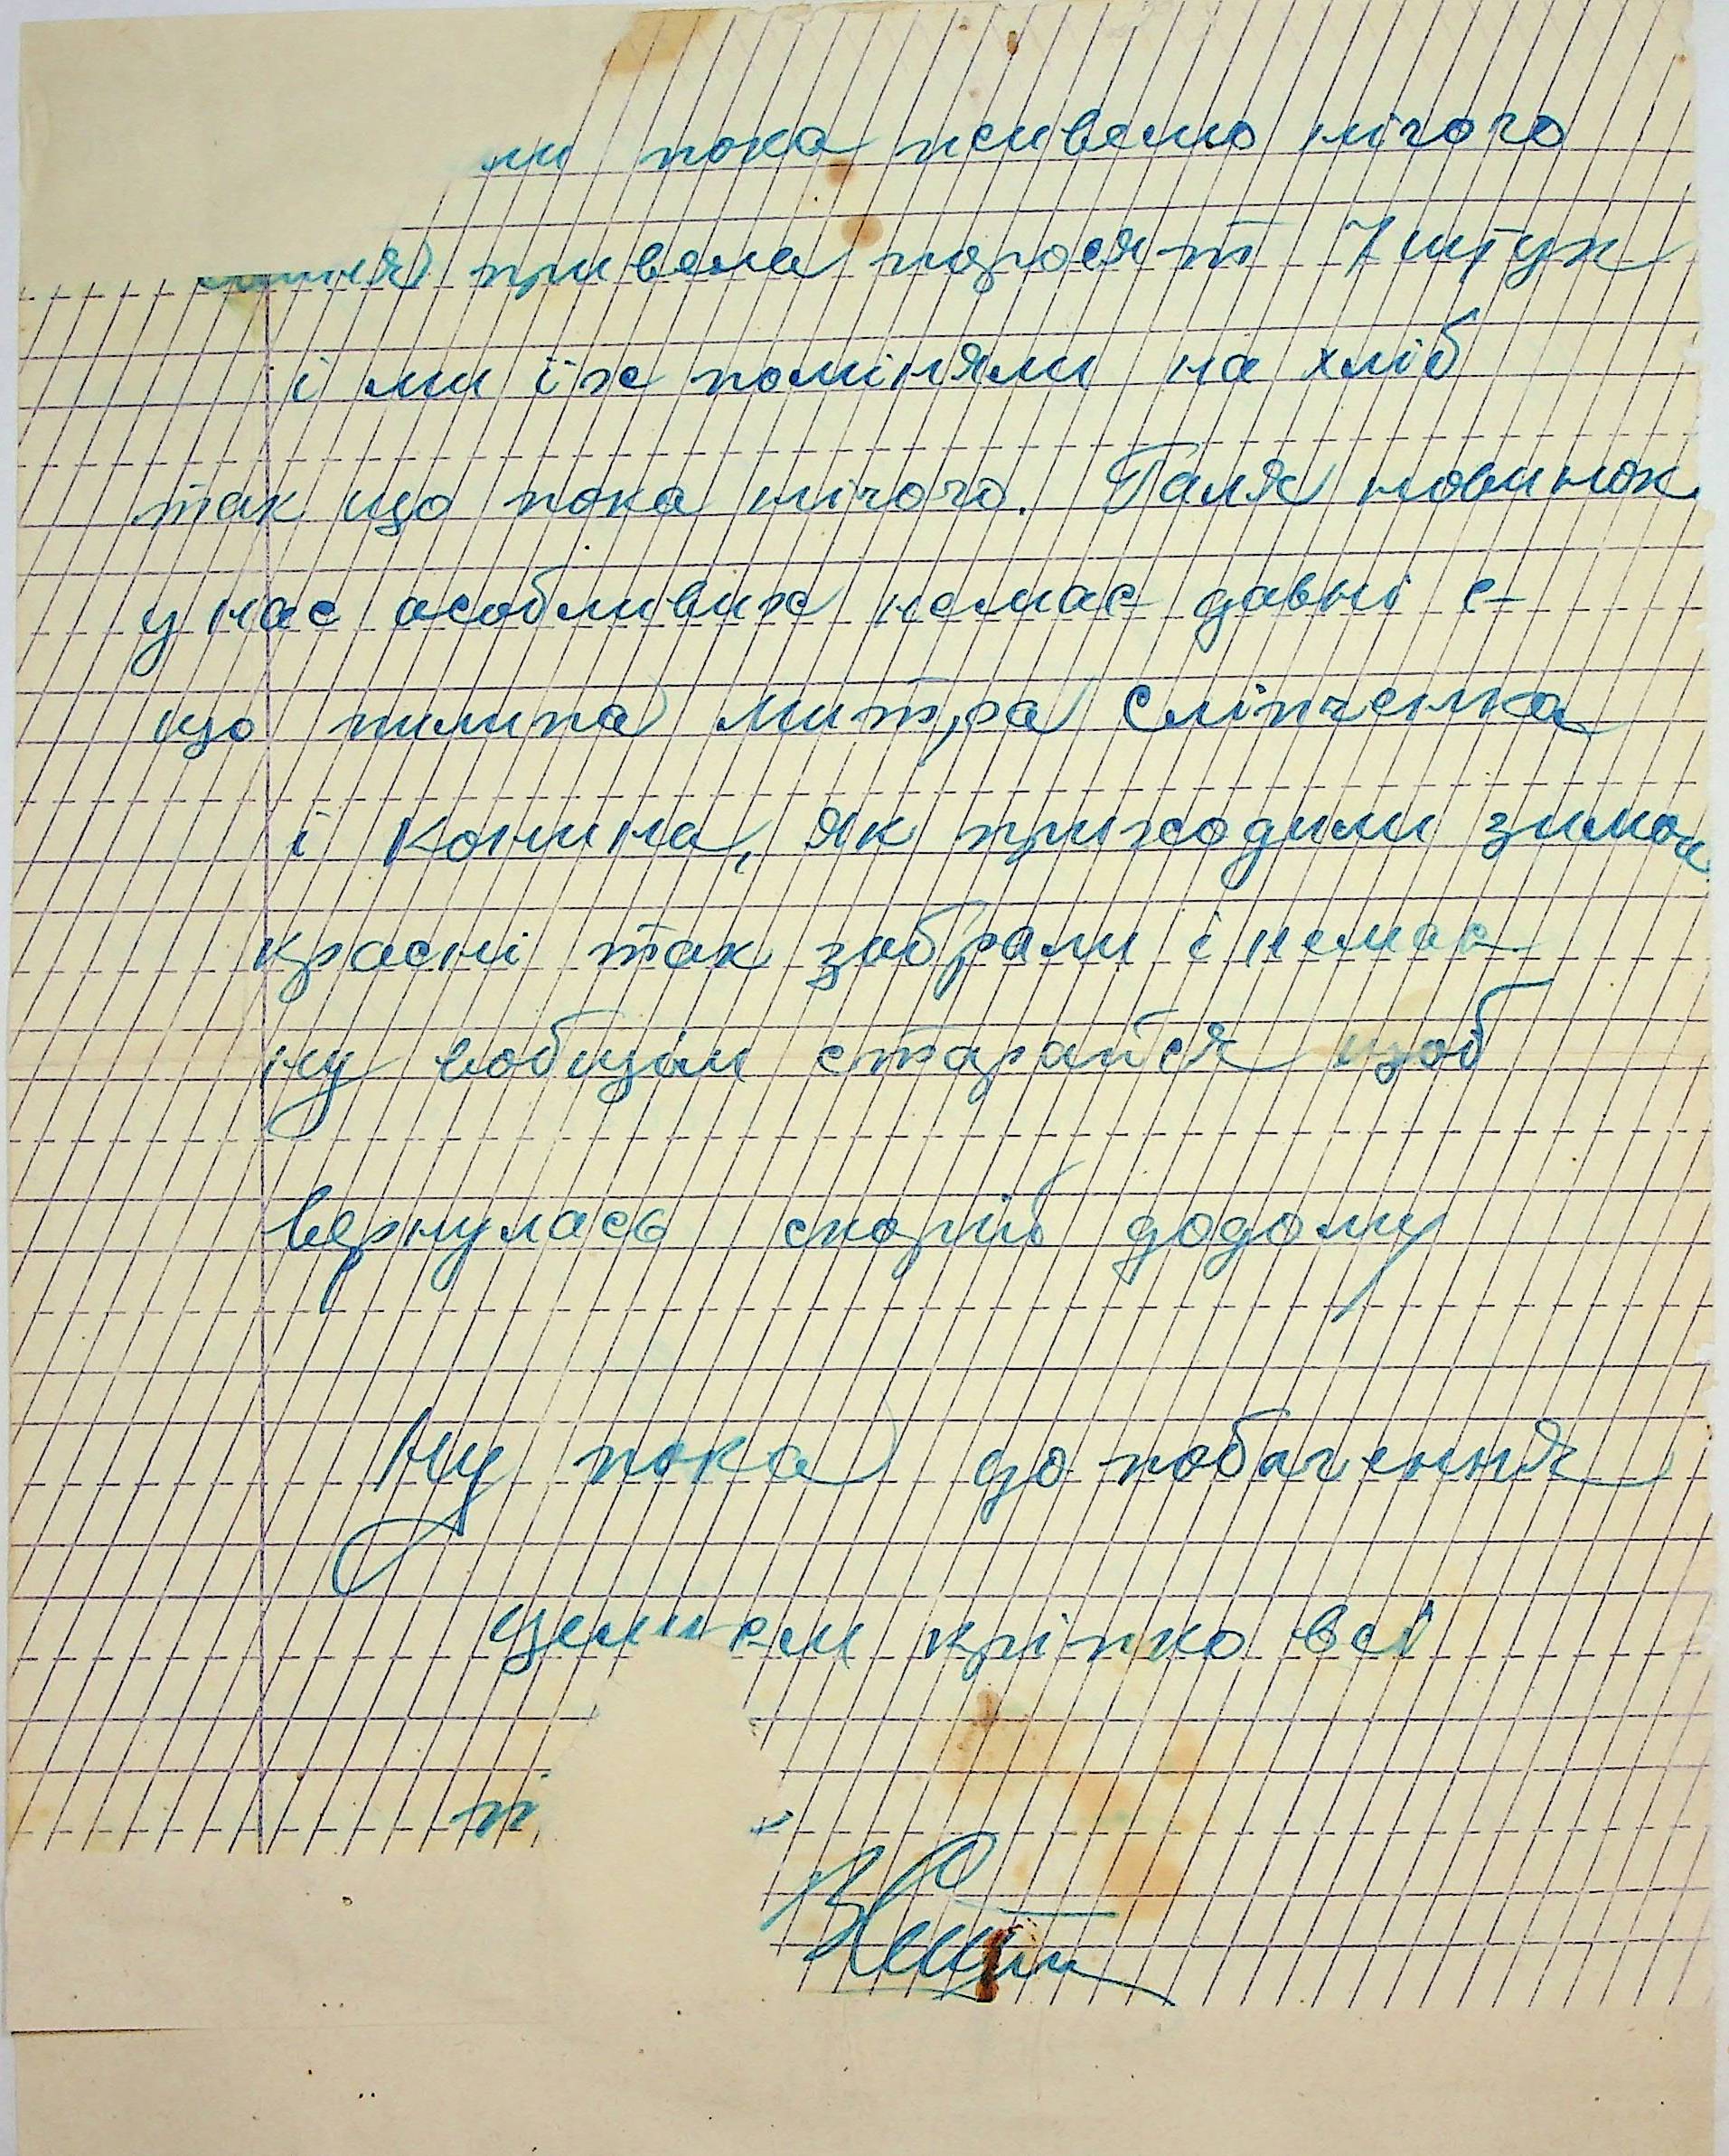 ми пока живемо нічого
привела поросят 7 штук
і ми їх поміняли на хліб
так що пока нічого. Галя новинок
у нас особливих немає давні є
що пилипа Митра Сліпченка
і Конина, як приходили зимою
красні так забрали і немає
ну вобщім старайся щоб
вернулась скорій додому
Ну пока до побачення
цілуєм кріпко всі